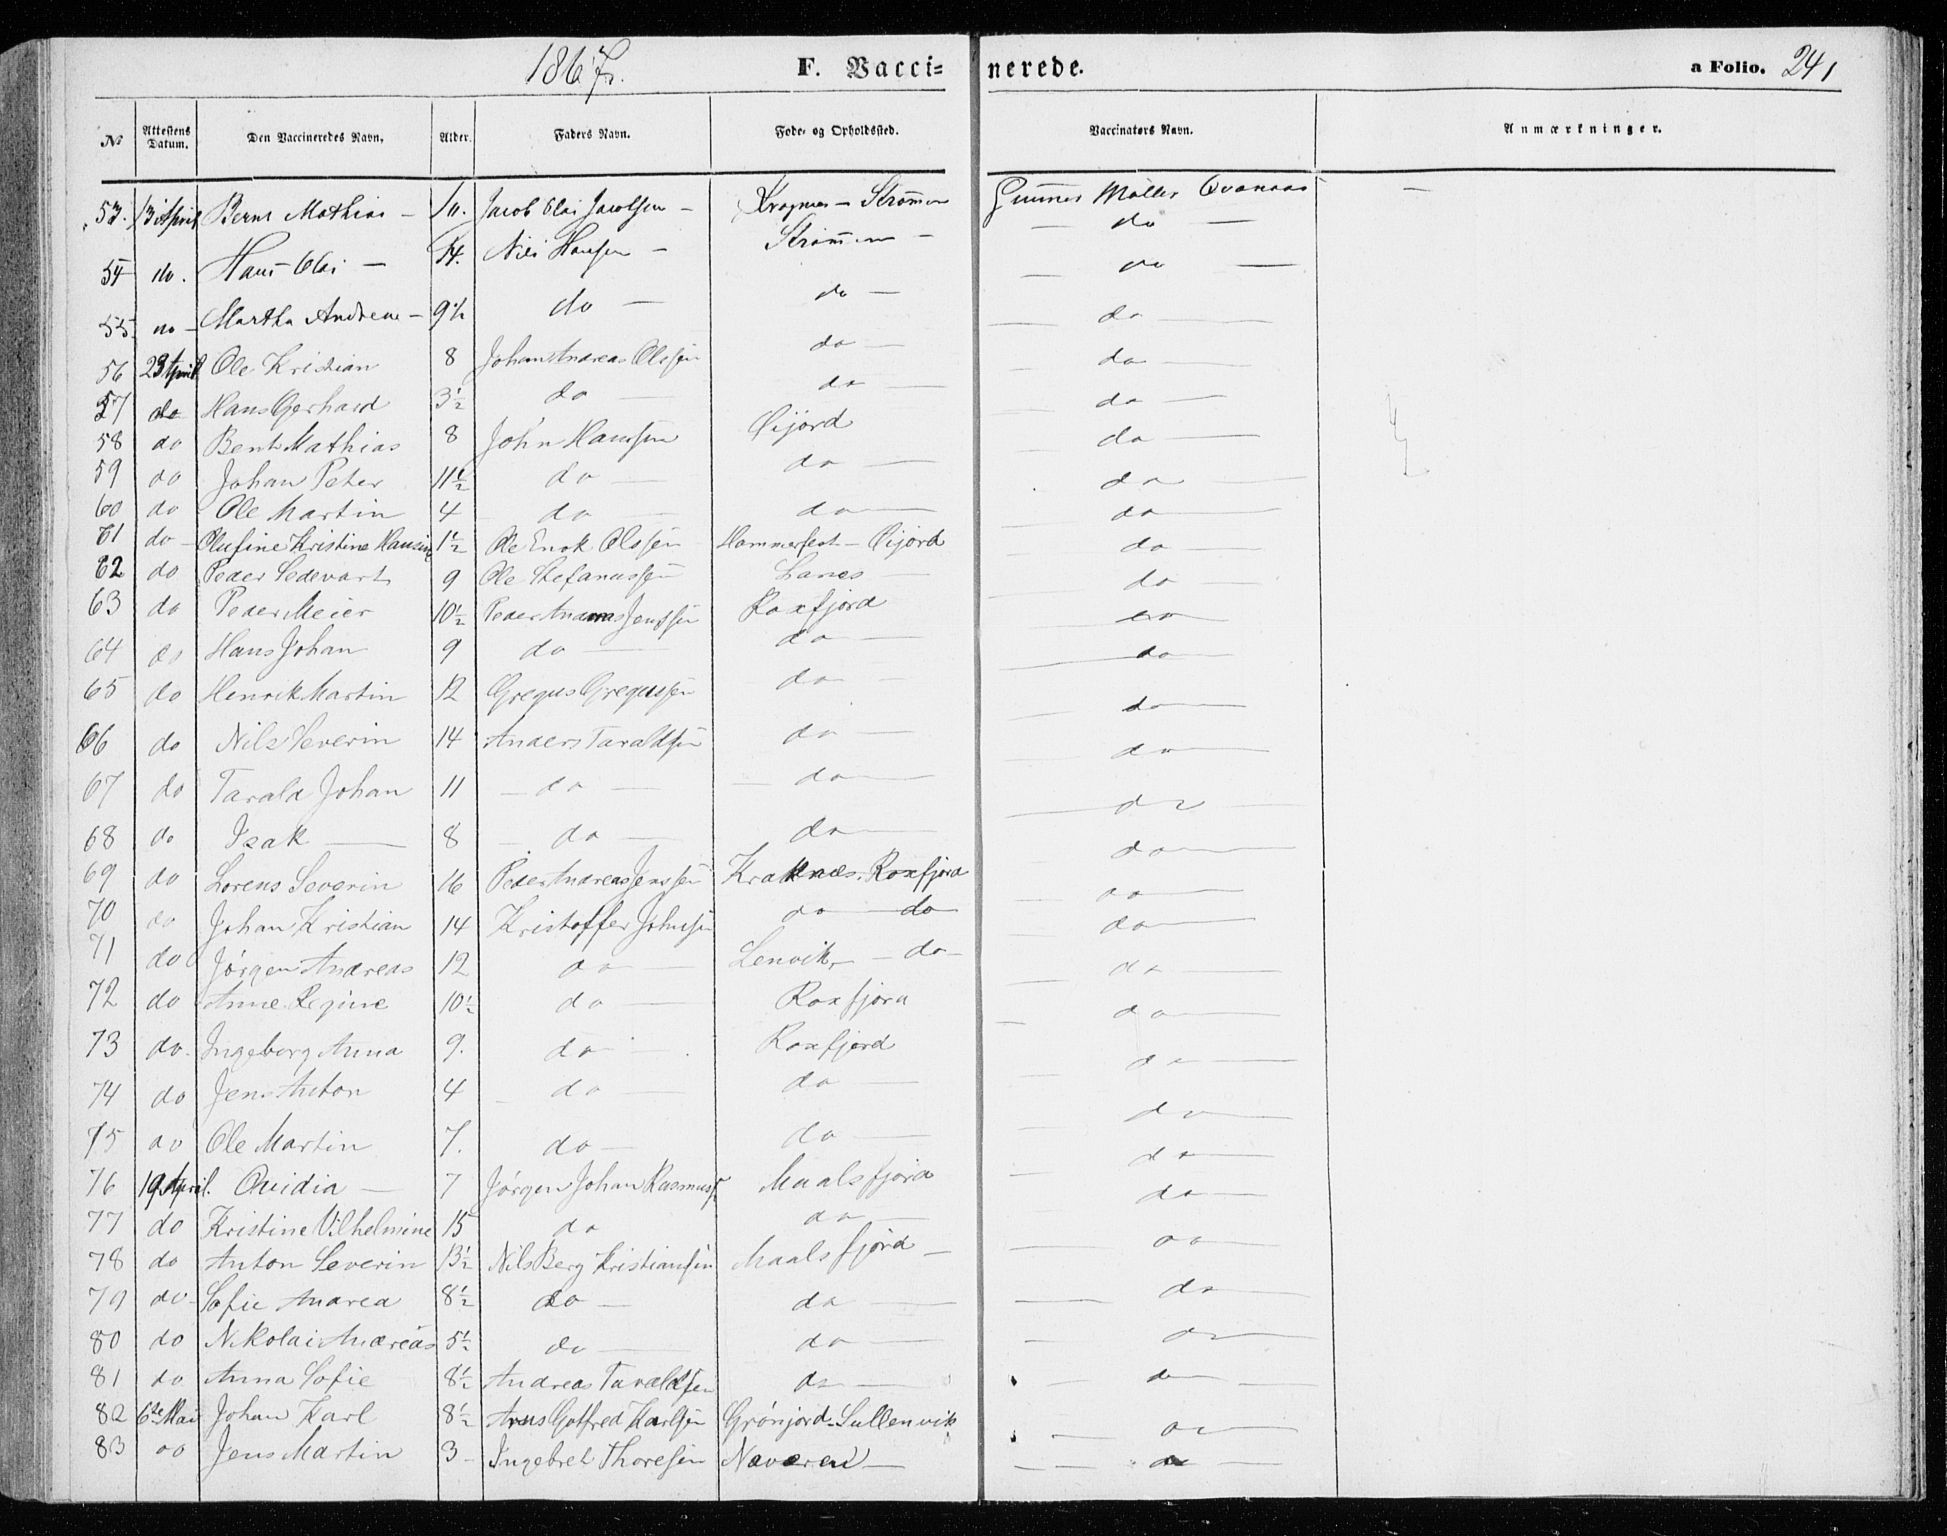 1867.
F. Vaccinerede.
a Folio. 241
No Attestens Datum. Den Vaccineredes Navn. Alder. Faders Navn. Føde- og Opholdssted. Vaccinators Navn. Anmærkninger.
53. 13 April Bernt Mathias — 10. Jacob Olai Jacobsen — Strømmen Møller —
54 do. Hans Olai — 14. Nils Hansen — Strømmen — — do —
55. do — Martha Andrea — 9½ do — do — — do —
56 23 April Ole Kristian 8 Johan Andreas Olssen do — — do —
57 do Hans Gerhard 3½ do — do — — do —
58 do Bent Mathias 8 John Hanssen Øijord do —
59 do Johan Peter 11½ do — do — — do —
60 do Ole Martin 4 do — do — do —
61 do — Olufine Kristine Hansine 1½ Ole Enok Olssen Hammerfest — Øijord — do —
62 do Peder Sedevart 9 Ole Stefanussen Lanes — — do —
63 do Peder Meier 10½ Peder Andreas Jenssen Roxfjord — do —
64 do Hans Johan 9 do — do — — do —
65 do Henrik Martin 12 Gregus Gregussen do — — do —
66 do Nils Severin 14 Anders Taraldsen do — — do —
67 do Tarald Johan 11 — do — — do — — do —
68 do Isak — 8 — do — do — — do —
69 do Lorens Severin 16 Peder Andreas Jenssen Kraknæs. Roxfjord — do —
70 do Johan Kristian 14 Kristoffer Johnsen do — do — do —
71 do Jørgen Andreas 12 do — Lenvik, — do — do —
72 do Anne Regine 10½ do — Roxfjord do —
73 do. Ingeborg Anna 9. do — Roxfjord — do —
74 do Jens Anton 4 — do — do — — do —
75 do Ole Martin 7. do — do — — do —
76 19 April. Ovidia — 7 Jørgen Johan Rasmuss. Maalsfjord — do —
77 do Kristine Vilhelmine 15 do do — do —
78 do Anton Severin 13½ Nils Berg Kristiansen Maalsfjord — — do —
79 do — Sofie Andrea 8½ do — do — — do —
80 do Nikolai Andreas 5½ do — do — — do —
81 do Anna Sofie 8½ Andreas Taraldsen do — do —
82 6te Mai Johan Karl 8½ Gotfred Karlsen Grønjord. Sullenvik — do —
83 do Jens Martin 3 — Ingebret Thoresen Naveren — — — do —